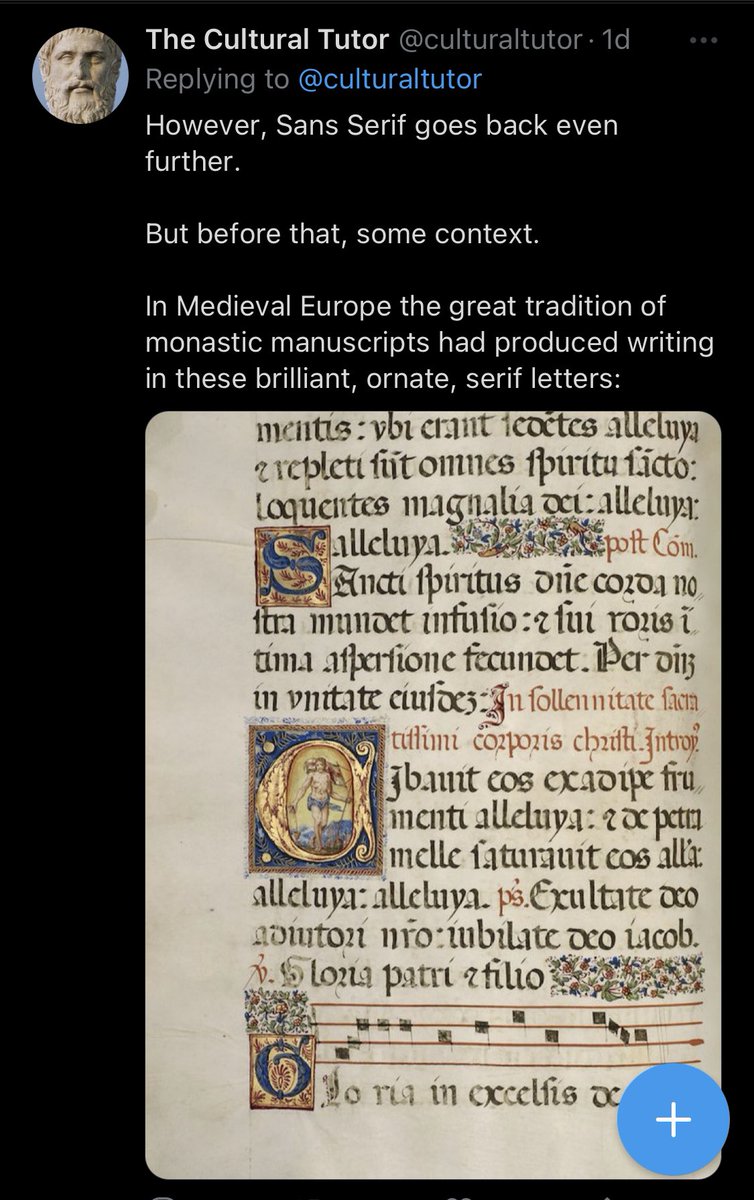 The Cultural Tutor @culturaltutor · 1d
Replying to @culturaltutor
However, Sans Serif goes back even
further.
But before that, some context.
In Medieval Europe the great tradition of
monastic manuscripts had produced writing
in these brilliant, ornate, serif letters:
mentis: vbi erant sedētes alleluya
⁊ repleti sūt omnes spiritu sācto:
loquentes magnalia dei: alleluya:
alleluya. post Cōm.
SAncti spiritus dñe corda no
stra mundet infusio: ⁊ sui roris ī
tima aspersione fecundet. Per dñ̄z
in vnitate eiusdez: In sollennitate sacra
tissimi corporis christi. Introy̆.
CIbauit eos ex adipe fru
menti alleluya: ⁊ de petra
melle saturauit eos all'a:
alleluya: alleluya. ps. Exultate deo
adiutori nr̄o: iubilate deo iacob.
v. Gloria patri ⁊ filio
Glo ria in excelsis de